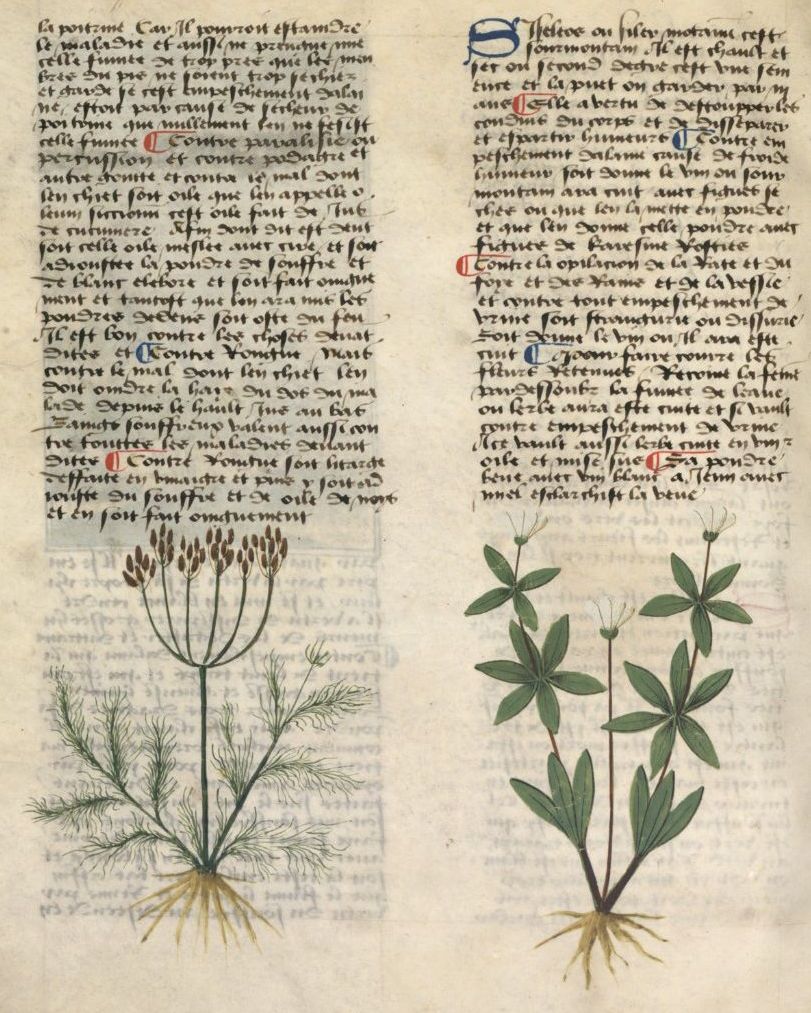 la poitrine Car Il pourroit estaindre
le maladie et aussi ne prengne mie
celle fumee de trop pres que les mem
bres du pis ne soient trop sechiez
et garde se cest empeschement dalai
ne, estoit par cause de secheur de
poitrine que nullement len ne fesist
celle fumee Contre paralisie ou
percussion et contre podagre et
autre goutte et contre le mal dont
len chiet soit oile que len appelle o
leum siccioni cest oile fait de Jus
de cucumere Afin dont dit est deut
soit celle oile meslee auec cire, et soit
adioustee la poudre de souffre et
de blanc elebore et soit fait oingne
ment et tantost que len ara mis les
poudres dedens soit oste du feu
Il est bon contre les choses deuat
dites et Contre Rongne Vault
contre le mal dont len chiet len
doit oindre la haje du dos du ma
lade depuis le hault Jus au bas
Baings souffreux valent aussi con
tre touttes les maladies deuant
dites Contre Rongne soit litarge
deffaite en vinaigre et puis y soit ad
iouste du souffre et de oile de nois
et en soit fait oingnement
Siseleos ou siler motanu cest
sourmontain Il est chault et
sec ou second degre cest vne sem
ence et la puet on garder par iii
ans Elle a vertu de destoupper les
conduis du corps et de disseparer
et espartir humeurs Contre em
peschement dalaine cause de froide
humeur soit donne le vin ou sour
montain ara cuit auec figues se
ches ou que len la mette en poudre
et que len donne celle poudre auec
figues de Karesme Rosties
Contre la opilacion de la Rate et du
foye et des Rains et de la vessie
et contre tout empeschement de
vrine soit stranguirie ou dissurie
soit donne le vin ou Il ara este
cuit Pour faire courre les
fleurs Retenues Recoiue la feme
par dessoubz la fumee de leaue
ou lerbe aura este cuite et si vault
contre empeschement de vrine
Ace vault aussi lerbe cuite en vin
oile et mise sus Sa poudre
beue auec vin blanc a Jeun auec
miel esclarchist la veue